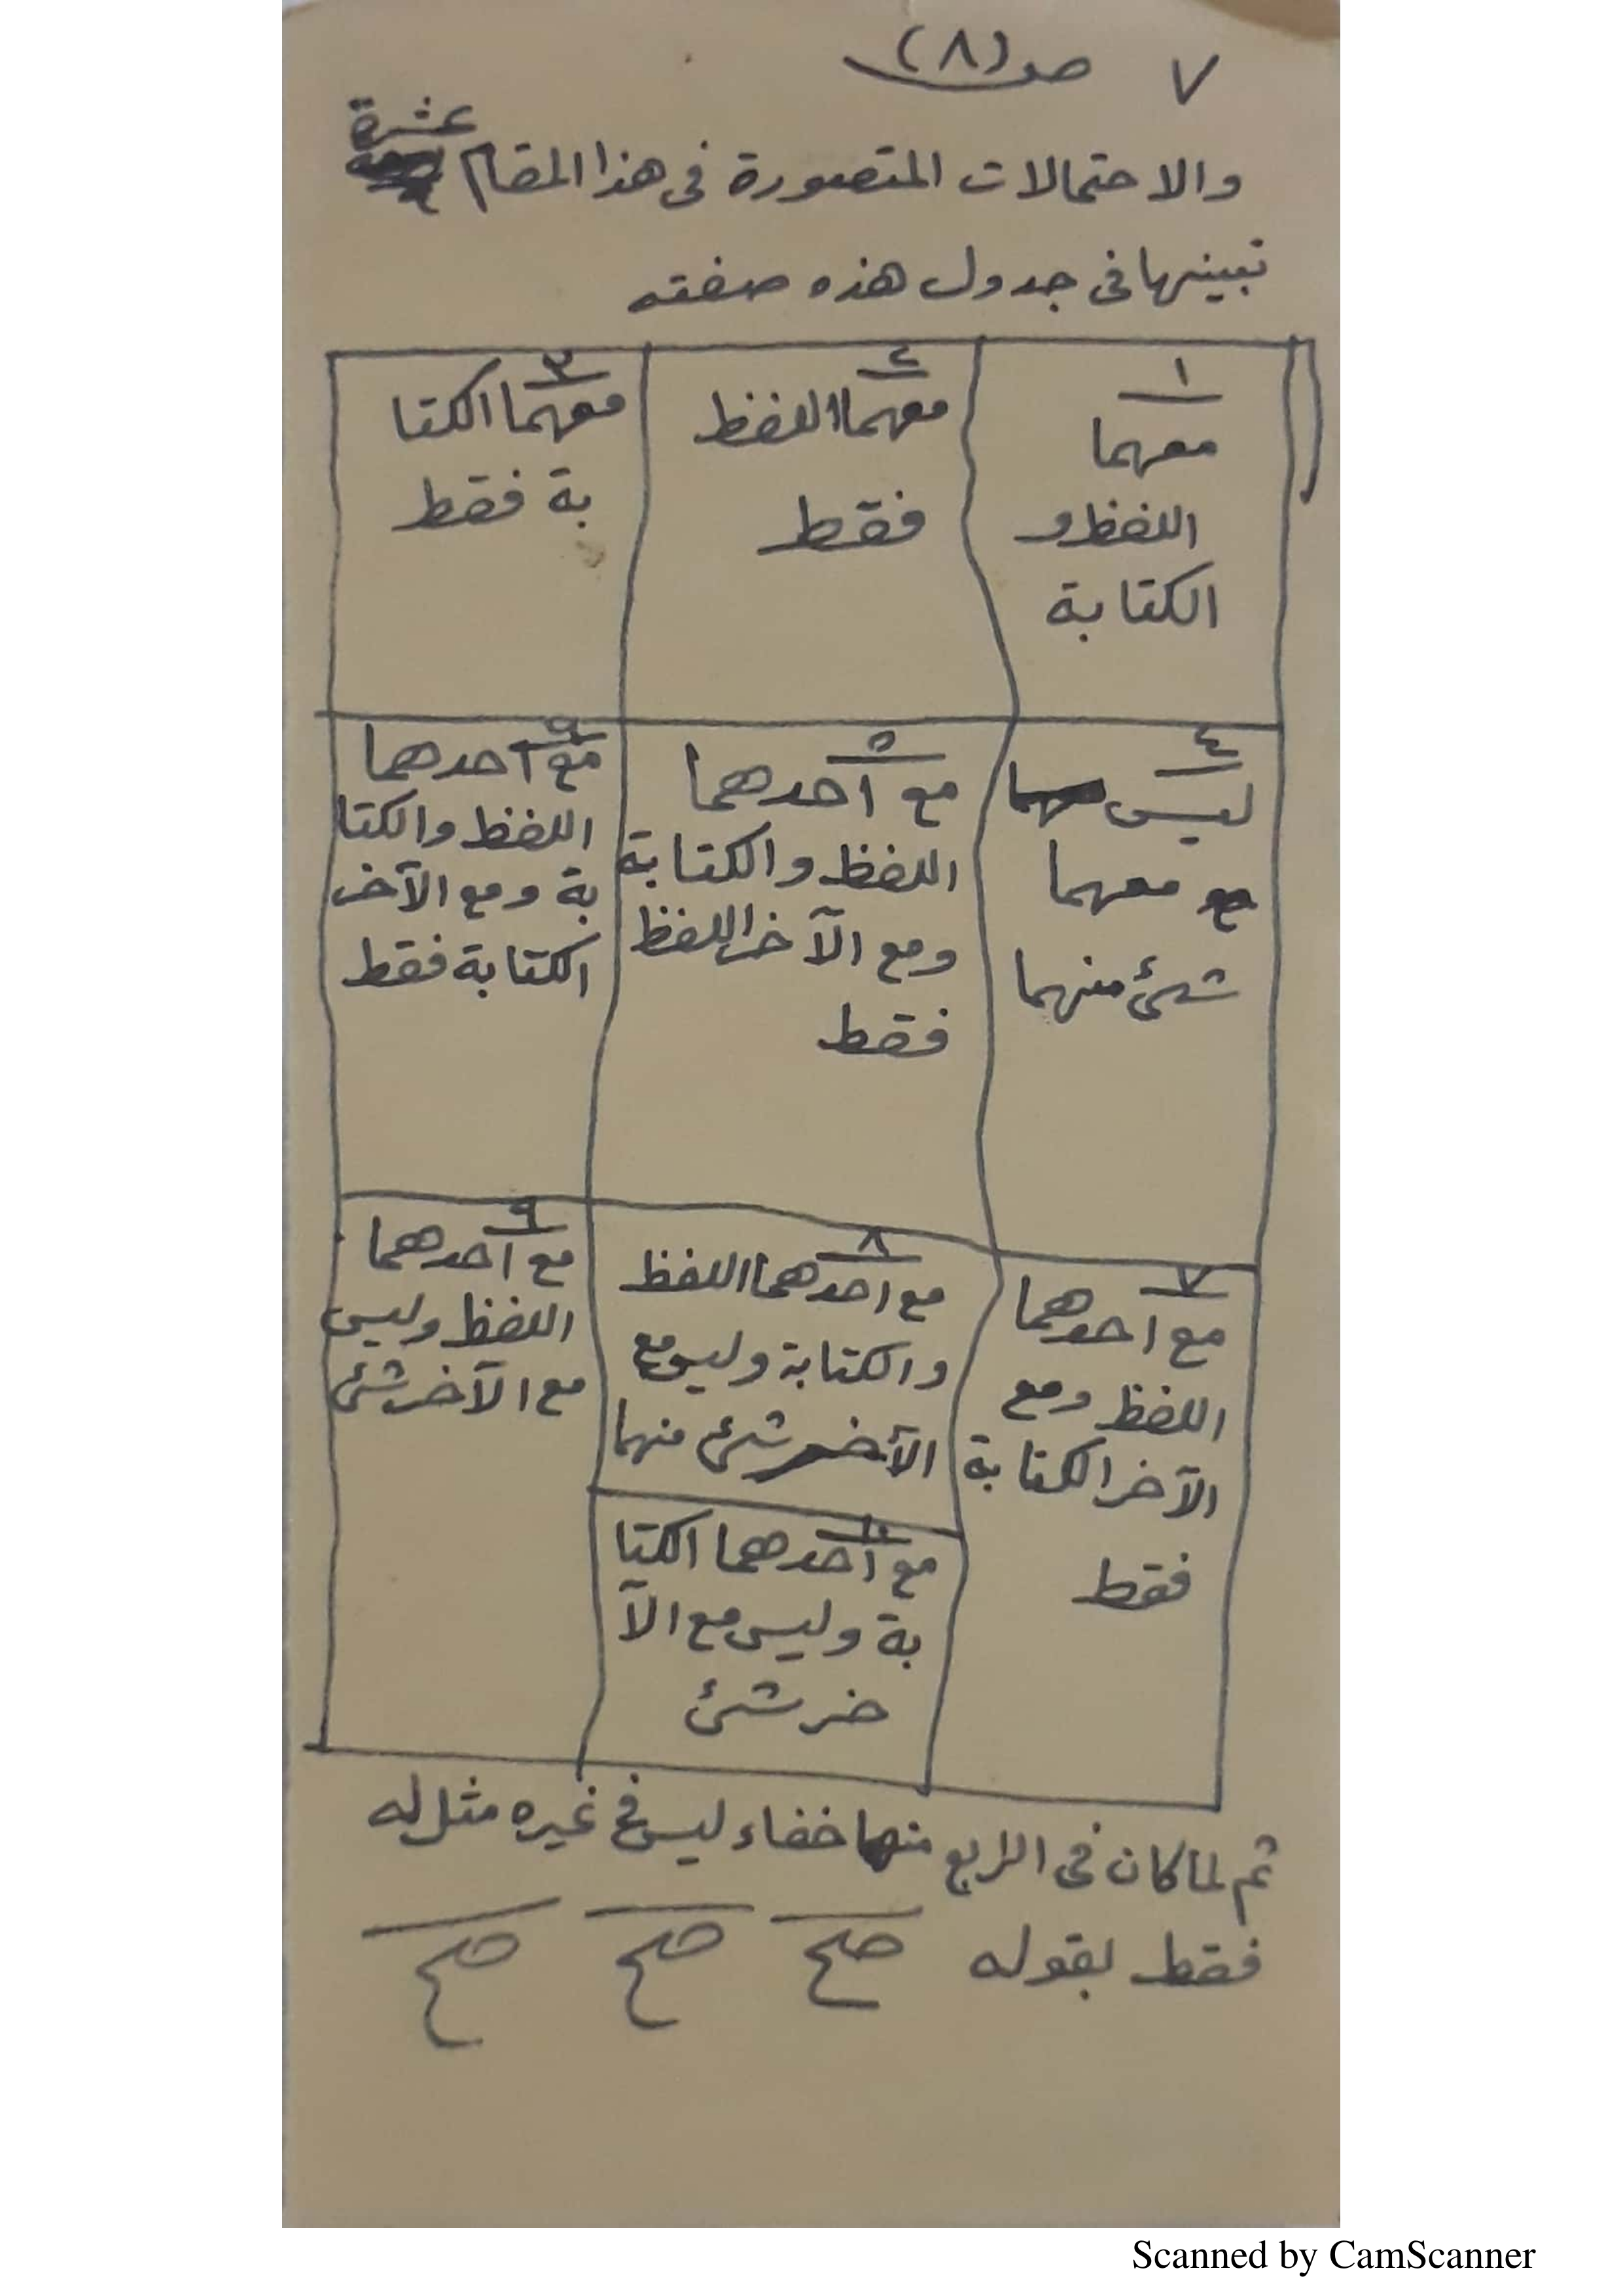 ٧ صـ (٨)
والاحتمالات المتصورة فى هذا المقام عشرة
نبينها فى جدول هذه صفته
١
معهما
اللفظ و
الكتابة
٢
معهما اللفظ
فقط
٣
معهما الكتا
بة فقط
٤
ليس
معهما
شئ منهما
٥
مع أحدهما
اللفظ والكتابة
ومع الآخر اللفظ
فقط
٦
مع أحدهما
اللفظ والكتا
بة ومع الآخر
الكتابة فقط
٧
مع احدهما
اللفظ ومع
الآخر الكتابة
فقط
٨
مع احدهما اللفظ
والكتابة وليس مع
الآخر شئ منهما
٩
مع أحدهما
اللفظ وليس
مع الآخر شئ
١٠
مع أحدهما الكتا
بة وليس مع الآ
خر شئ
ثم لما كان فى الرابع منها خفاء ليس فى غيره مثل له
فقط بقوله صح صح صح
Scanned by CamScanner